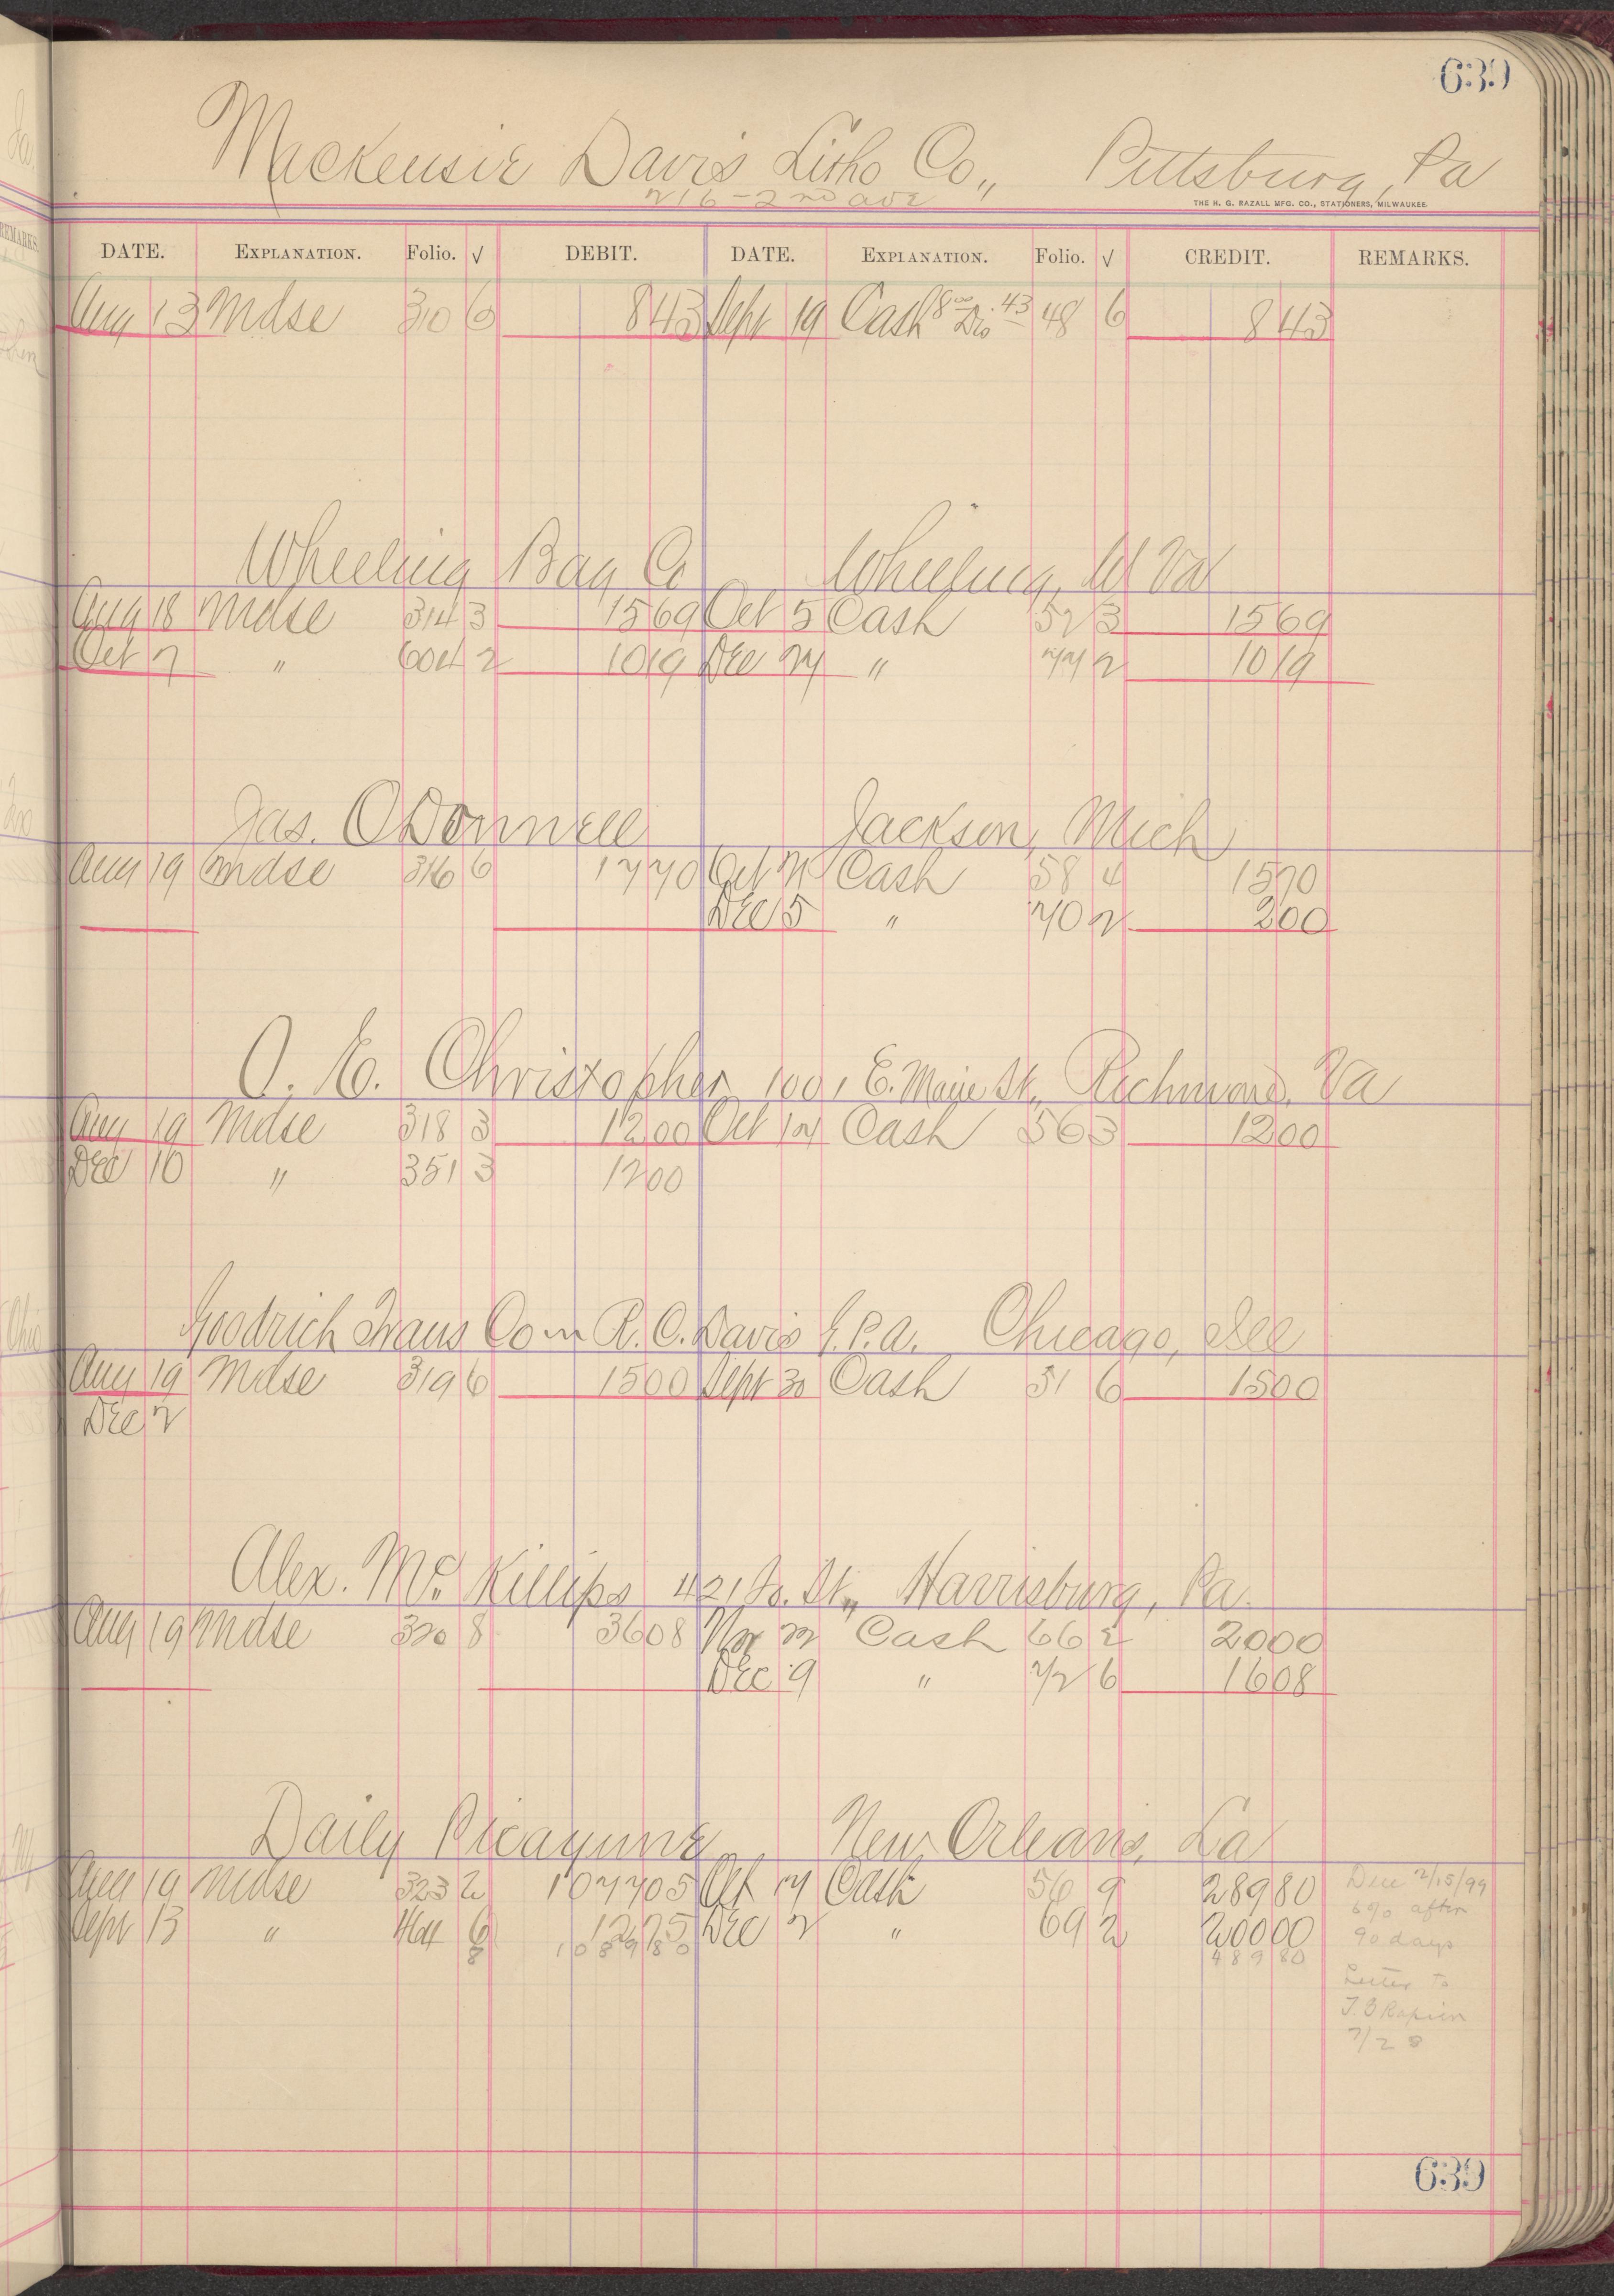 639
Mackensie Davis Litho Co., Pittsburg, Pa
216-2nd ave
THE H. G. RAZALL MFG. CO., STATIONERS, MILWAUKEE.
DATE. EXPLANATION. Folio. √ DEBIT. DATE. EXPLANATION. Folio. √ CREDIT. REMARKS.
Aug 13 Mdse 310 6 843 Sept 19 Cash 8 00 Dis .43 48 6 843
Wheeling Bag Co Wheeling, W Va
Aug 18 Mdse 314 3 1569 Oct 5 Cash 52 3 1569
Oct 7 " 2 1019 Dec 24 " 77 2 1019
Jas. O'Donnell Jackson, Mich
Aug 19 Mdse 316 6 1770 Oct Cash 58 4 1570
Dec 5 " 70 2 200
O. E. Christopher 1001 E. Main St., Richmond, Va
Aug 19 Mdse 318 3 1200 Oct 14 Cash 56 3 1200
Dec 10 " 351 3 1200
Goodrich Trans Com R. C. Davis G.P.A. Chicago, Ill
Aug 19 Mdse 319 6 1500 Sept 30 Cash 51 6 1500
Dec 2
Alex. Mc Killips 421 St., Harrisburg, Pa.
Aug 19 Mdse 320 8 3608 Nov 22 Cash 66 2 2000
Dec 9 " 72 6 1608
Daily Picayune New Orleans, La
Aug 19 Mdse 323 2 107705 Oct 17 Cash 56 9 28980 Due 2/15/99
Sept 13 " 6 1275 Dec 2 " 69 2 20000 6% after
8 108980 48980 90 days
Letter to
T. G Rapier
7/28
639